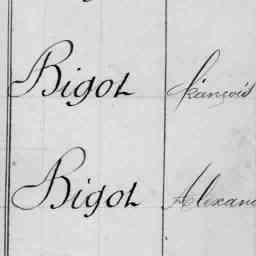 Bigot François
Bigot Alexand